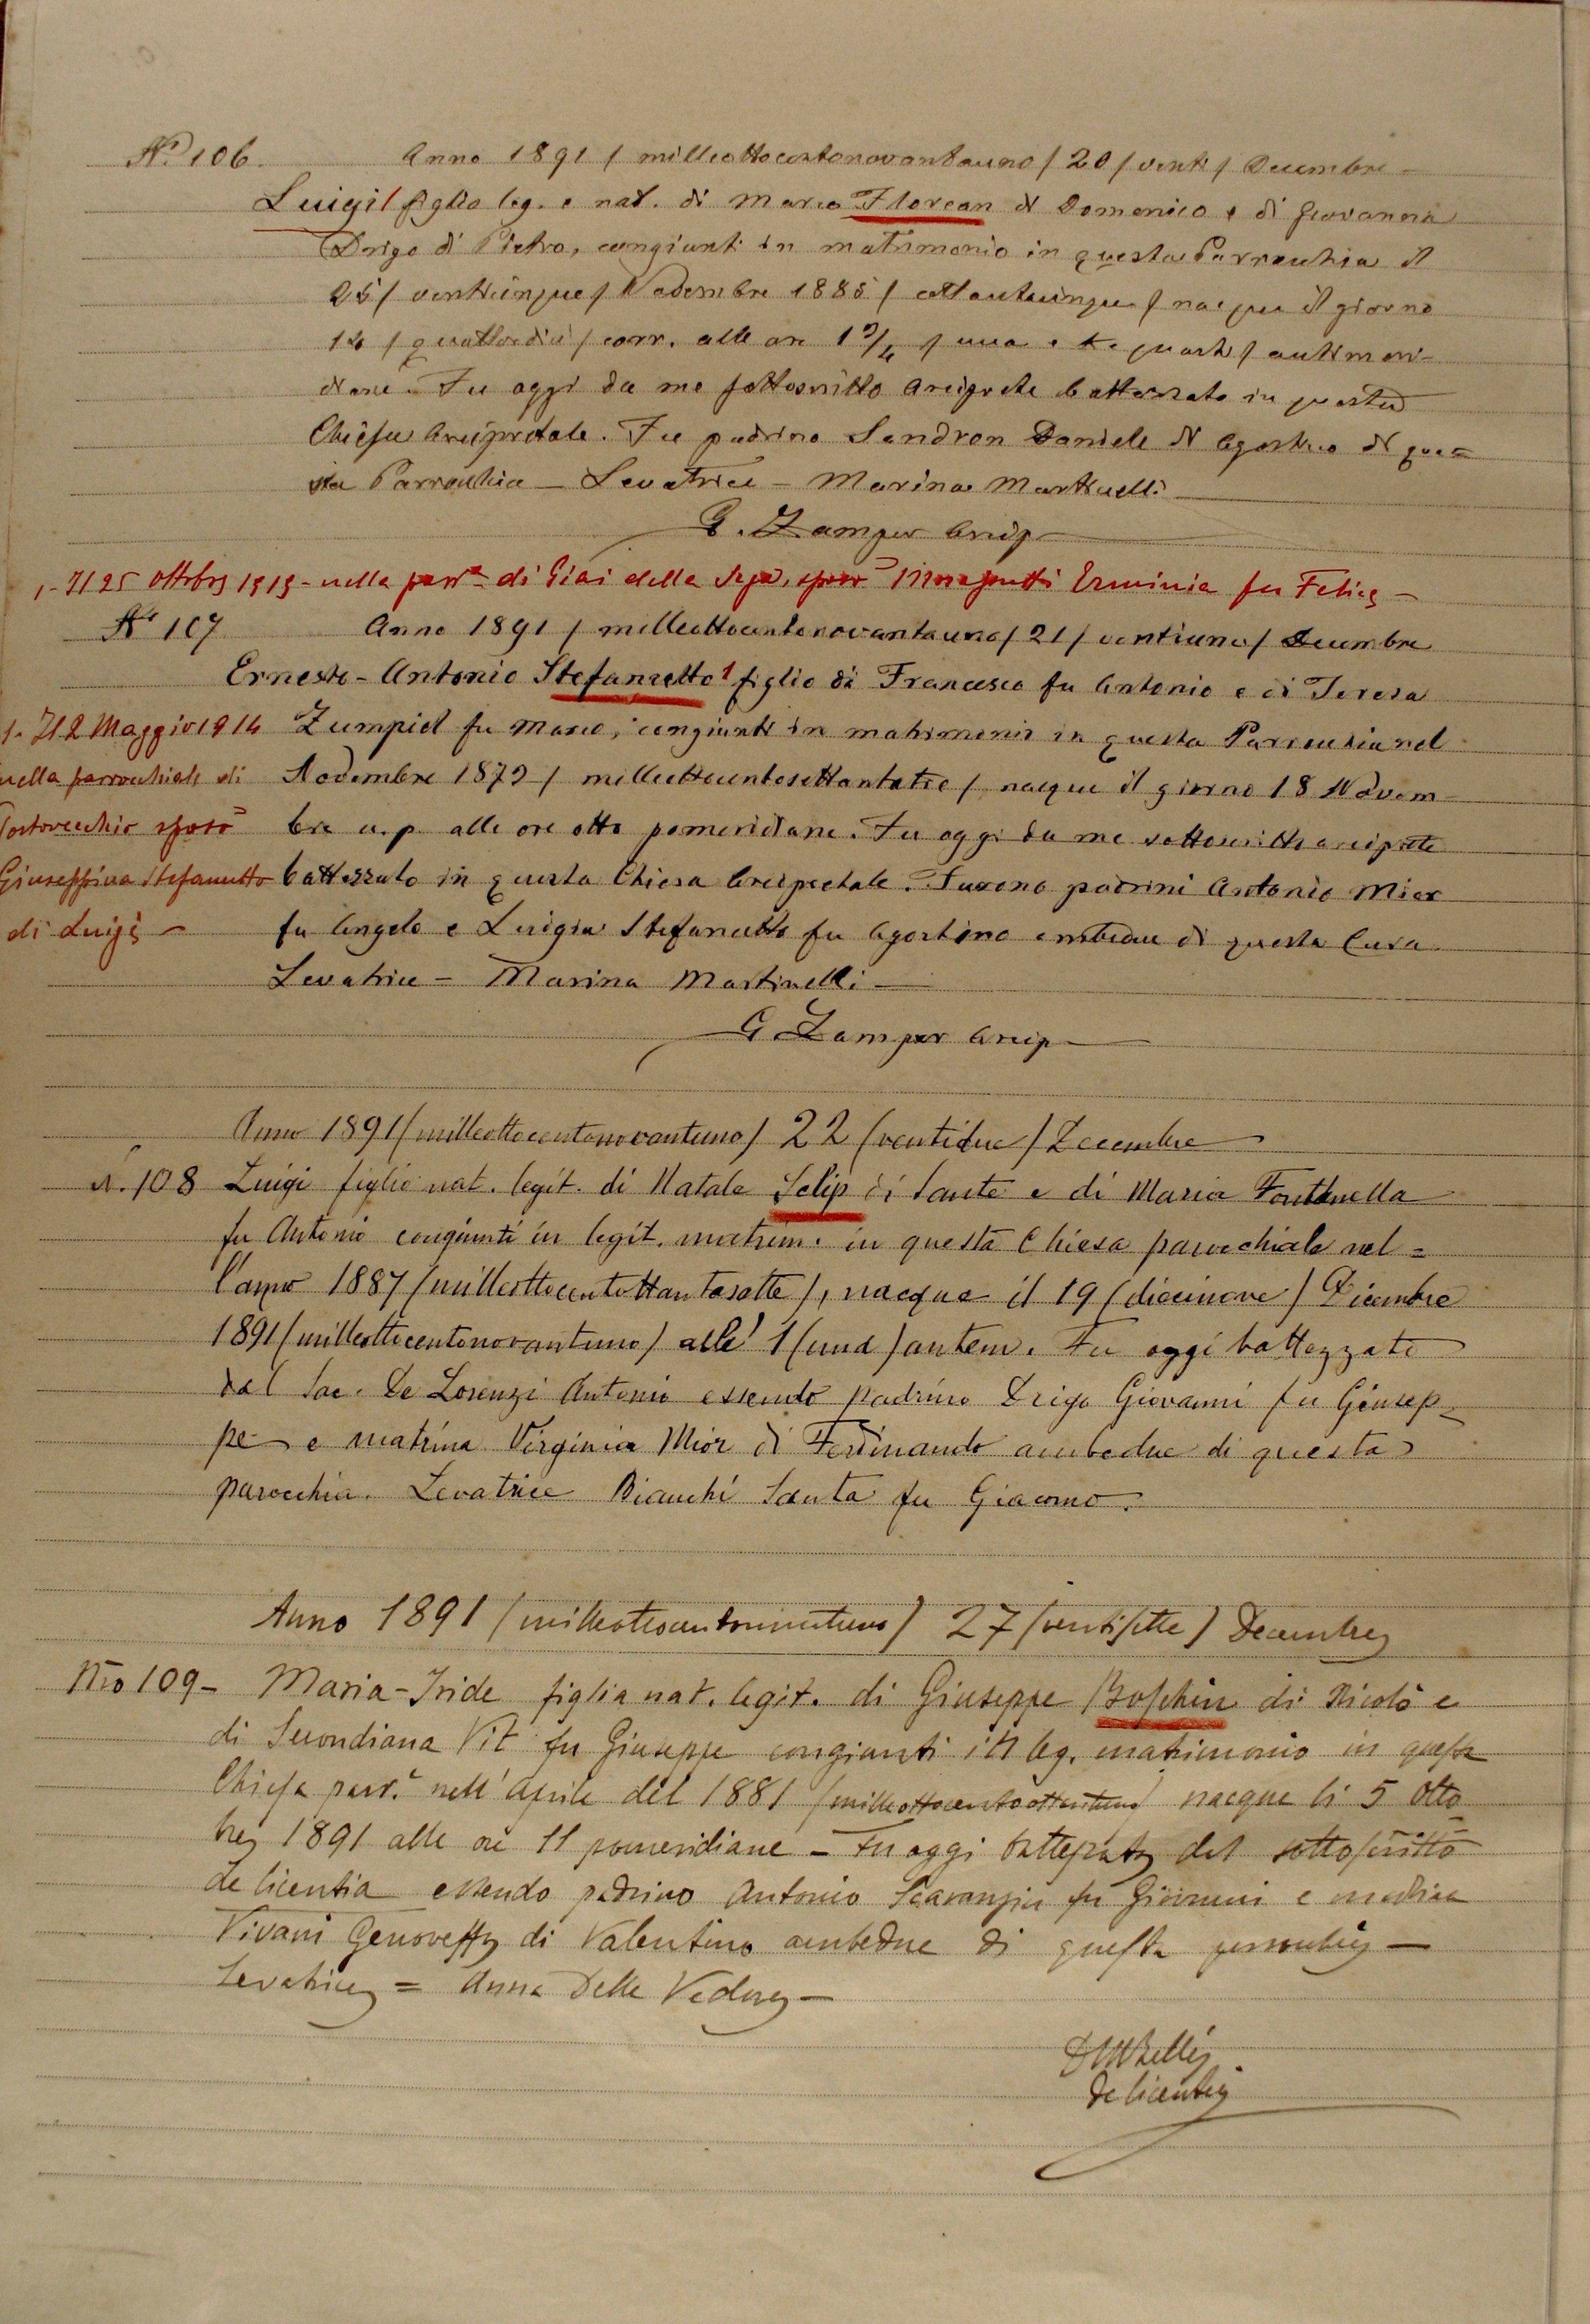 No 106. Anno 1891 / milleottocentonovantauno / 20 / venti / Decembre
Luigi 1 figlio leg. e nat. di Marco Florean di Domenico e di Giovanna
Drigo di Pietro, congiunti in matrimonio in questa Parrochia il
25 / venticinque / Novembre 1885 / ottantacinque / nacque il giorno
14 / quattordici / corr. alle ore 1 3/4 / una e tre quarti / antimeri-
diane. Fu oggi da me sottoscritto Arciprete battezzato in questa
Chiesa Arcipretale. Fu padrino Sandron Daniele di Agostino di que=
sta Parrochia — Levatrice — Marina Martinelli
G. Zamper Arcip
1- Il 25 Ottobre 1919 - nella parra di Giai della Sega, sposò Erminia fu Felice —
No 107 Anno 1891 / milleottocentonovantauno / 21 / ventiuno / Decembre
Ernesto - Antonio Stefanutto 1 figlio di Francesco fu Antonio e di Teresa
Zumpiel fu Marco, congiunti in matrimonio in questa Parrochia nel
Novembre 1873 / milleottocentosettantatre / nacque il giorno 18 Novem
bre u.p. alle ore otto pomeridiane. Fu oggi da me sottoscritto arciprete
battezzato in questa Chiesa Arcipretale. Furono padrini Antonio Mior
fu Angelo e Luigia Stefanutto fu Agostino ambedue di questa Cura
Levatrice — Marina Martinelli —
G Zamper Arcip
1. Il 2 Maggio 1914
nella parrochiale di
Portovecchio sposò
Giuseppina Stefanutto
di Luigi —
Anno 1891 (milleottocentonovantuno) 22 (ventidue) Decembre
N. 108 Luigi figlio nat. legit. di Natale Selip di Sante e di Maria Fontanella
fu Antonio congiunti in legit. matrim. in questa Chiesa parochiale nel=
l'anno 1887 (milleottocentottantasette), nacque il 19 (diecinove) Dicembre
1891 (milleottocentonovantuno) alle 1 (una) antem. Fu oggi battezzato
dal Sac. De Lorenzi Antonio essendo padrino Drigo Giovanni fu Giusep=
pe e matrina Virginia Mior di Ferdinando ambedue di questa
parocchia. Levatrice Bianchi Santa fu Giacomo.
Anno 1891 (milleottocentonovantuno) 27 (ventisette) Decembre
Nro 109 - Maria-Iride figlia nat. legit. di Giuseppe Boschin di Nicolò e
di Secondiana Vit fu Giuseppe congiunti in leg. matrimonio in questa
Chiesa parr. nell'aprile del 1881 (milleottocentoottantuno) nacque li 5 Otto
bre 1891 alle ore 11 pomeridiane — Fu oggi battezzata dal sottoscritto
de licentia essendo padrino Antonio fu Giovanni e madrina
Vivani Genoveffa di Valentino ambedue di questa parrochia —
Levatrice = Anna Delle Vedove —
de licentia